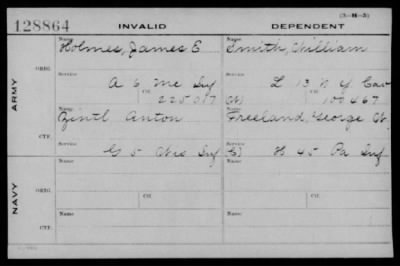 128864 INVALID DEPENDENT (3-H-5)
Name Name
Holmes, James E Smith, William
ORIG.
Service Service
A 6 Me Inf L 13 N Y Cav
Ctf. Ctf.
225017 100467
ARMY
Name Name
Zintl Anton Freeland, George W.
CTF.
Service Service
G 5 Wis Inf H 45 Pa Inf
Name Name
ORIG.
Service Ctf. Service Ctf.
NAVY
Name Name
CTF.